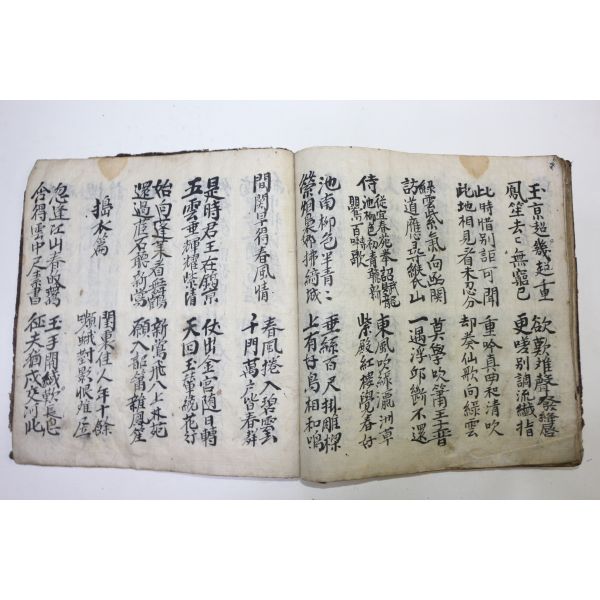 玉京超幾超重
欲歎離聲發絳唇
鳳笙去〻無窮已
更嗟別調流纖指
此時惜別詎可聞
重吟真曲和清吹
此地相看未忍分
却奏仙歌向綠雲
綠雲紫氣向函關
莫學吹簫王子晋
訪道應尋緱氏山
一遇浮邱斷不還
侍從宜春苑奉詔賦龍
池柳色初青聽新
鶯百囀歌
東風吹綠瀛洲草
紫殿紅樓覺春好
池南柳色半青〻
垂絲百尺掛雕樑
縈烟裊娜拂綺城
上有好鳥相和鳴
間關早得春風情
春風捲入碧雲
千門萬戶皆春聲
是時君王在鎬京
仗出金宮隨日轉
五雲垂輝耀紫清
天回玉輦繞花行
始向蓬萊看舞鶴
新鶯飛入上林苑
還過茝石聽新鶯
願入韶簫雜鳳笙
搗衣篇
閨裏佳人年十餘
嚬蛾對影恨離居
忽逢江山春歸鷰
玉手開緘歎長息
含得雲中尺素書
征夫猶戍交河北